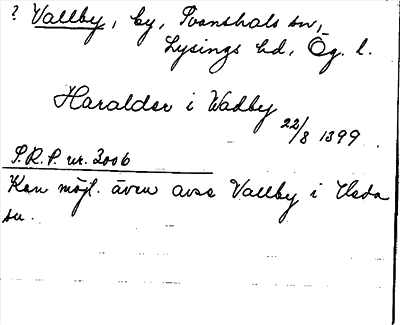 ? Vallby, by, Svanshals sn,
Lysings hd, Ög. l.
Haralder i Wadby
22/8 1399
S.R.P. nr. 3006
Kan möjl. även avse Vallby i Heda
sn.